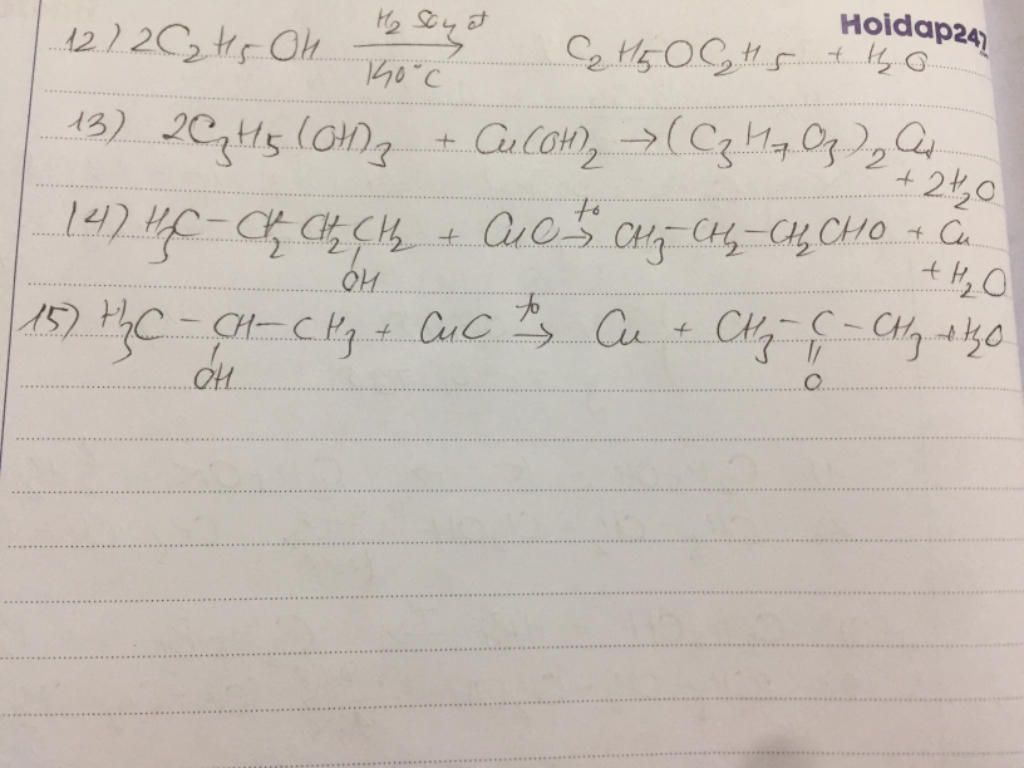 Hoidap247
H₂SO₄ đ
12) 2C₂H₅OH → C₂H₅OC₂H₅ + H₂O
140°C
13) 2C₃H₅(OH)₃ + Cu(OH)₂ → (C₃H₇O₃)₂Cu
+ 2H₂O
14) H₃C - CH₂ CH₂ CH₂ + CuO t° → CH₃-CH₂-CH₂CHO + Cu
OH + H₂O
15) H₃C - CH - CH₃ + CuO t° → Cu + CH₃ - C - CH₃ + H₂O
OH O